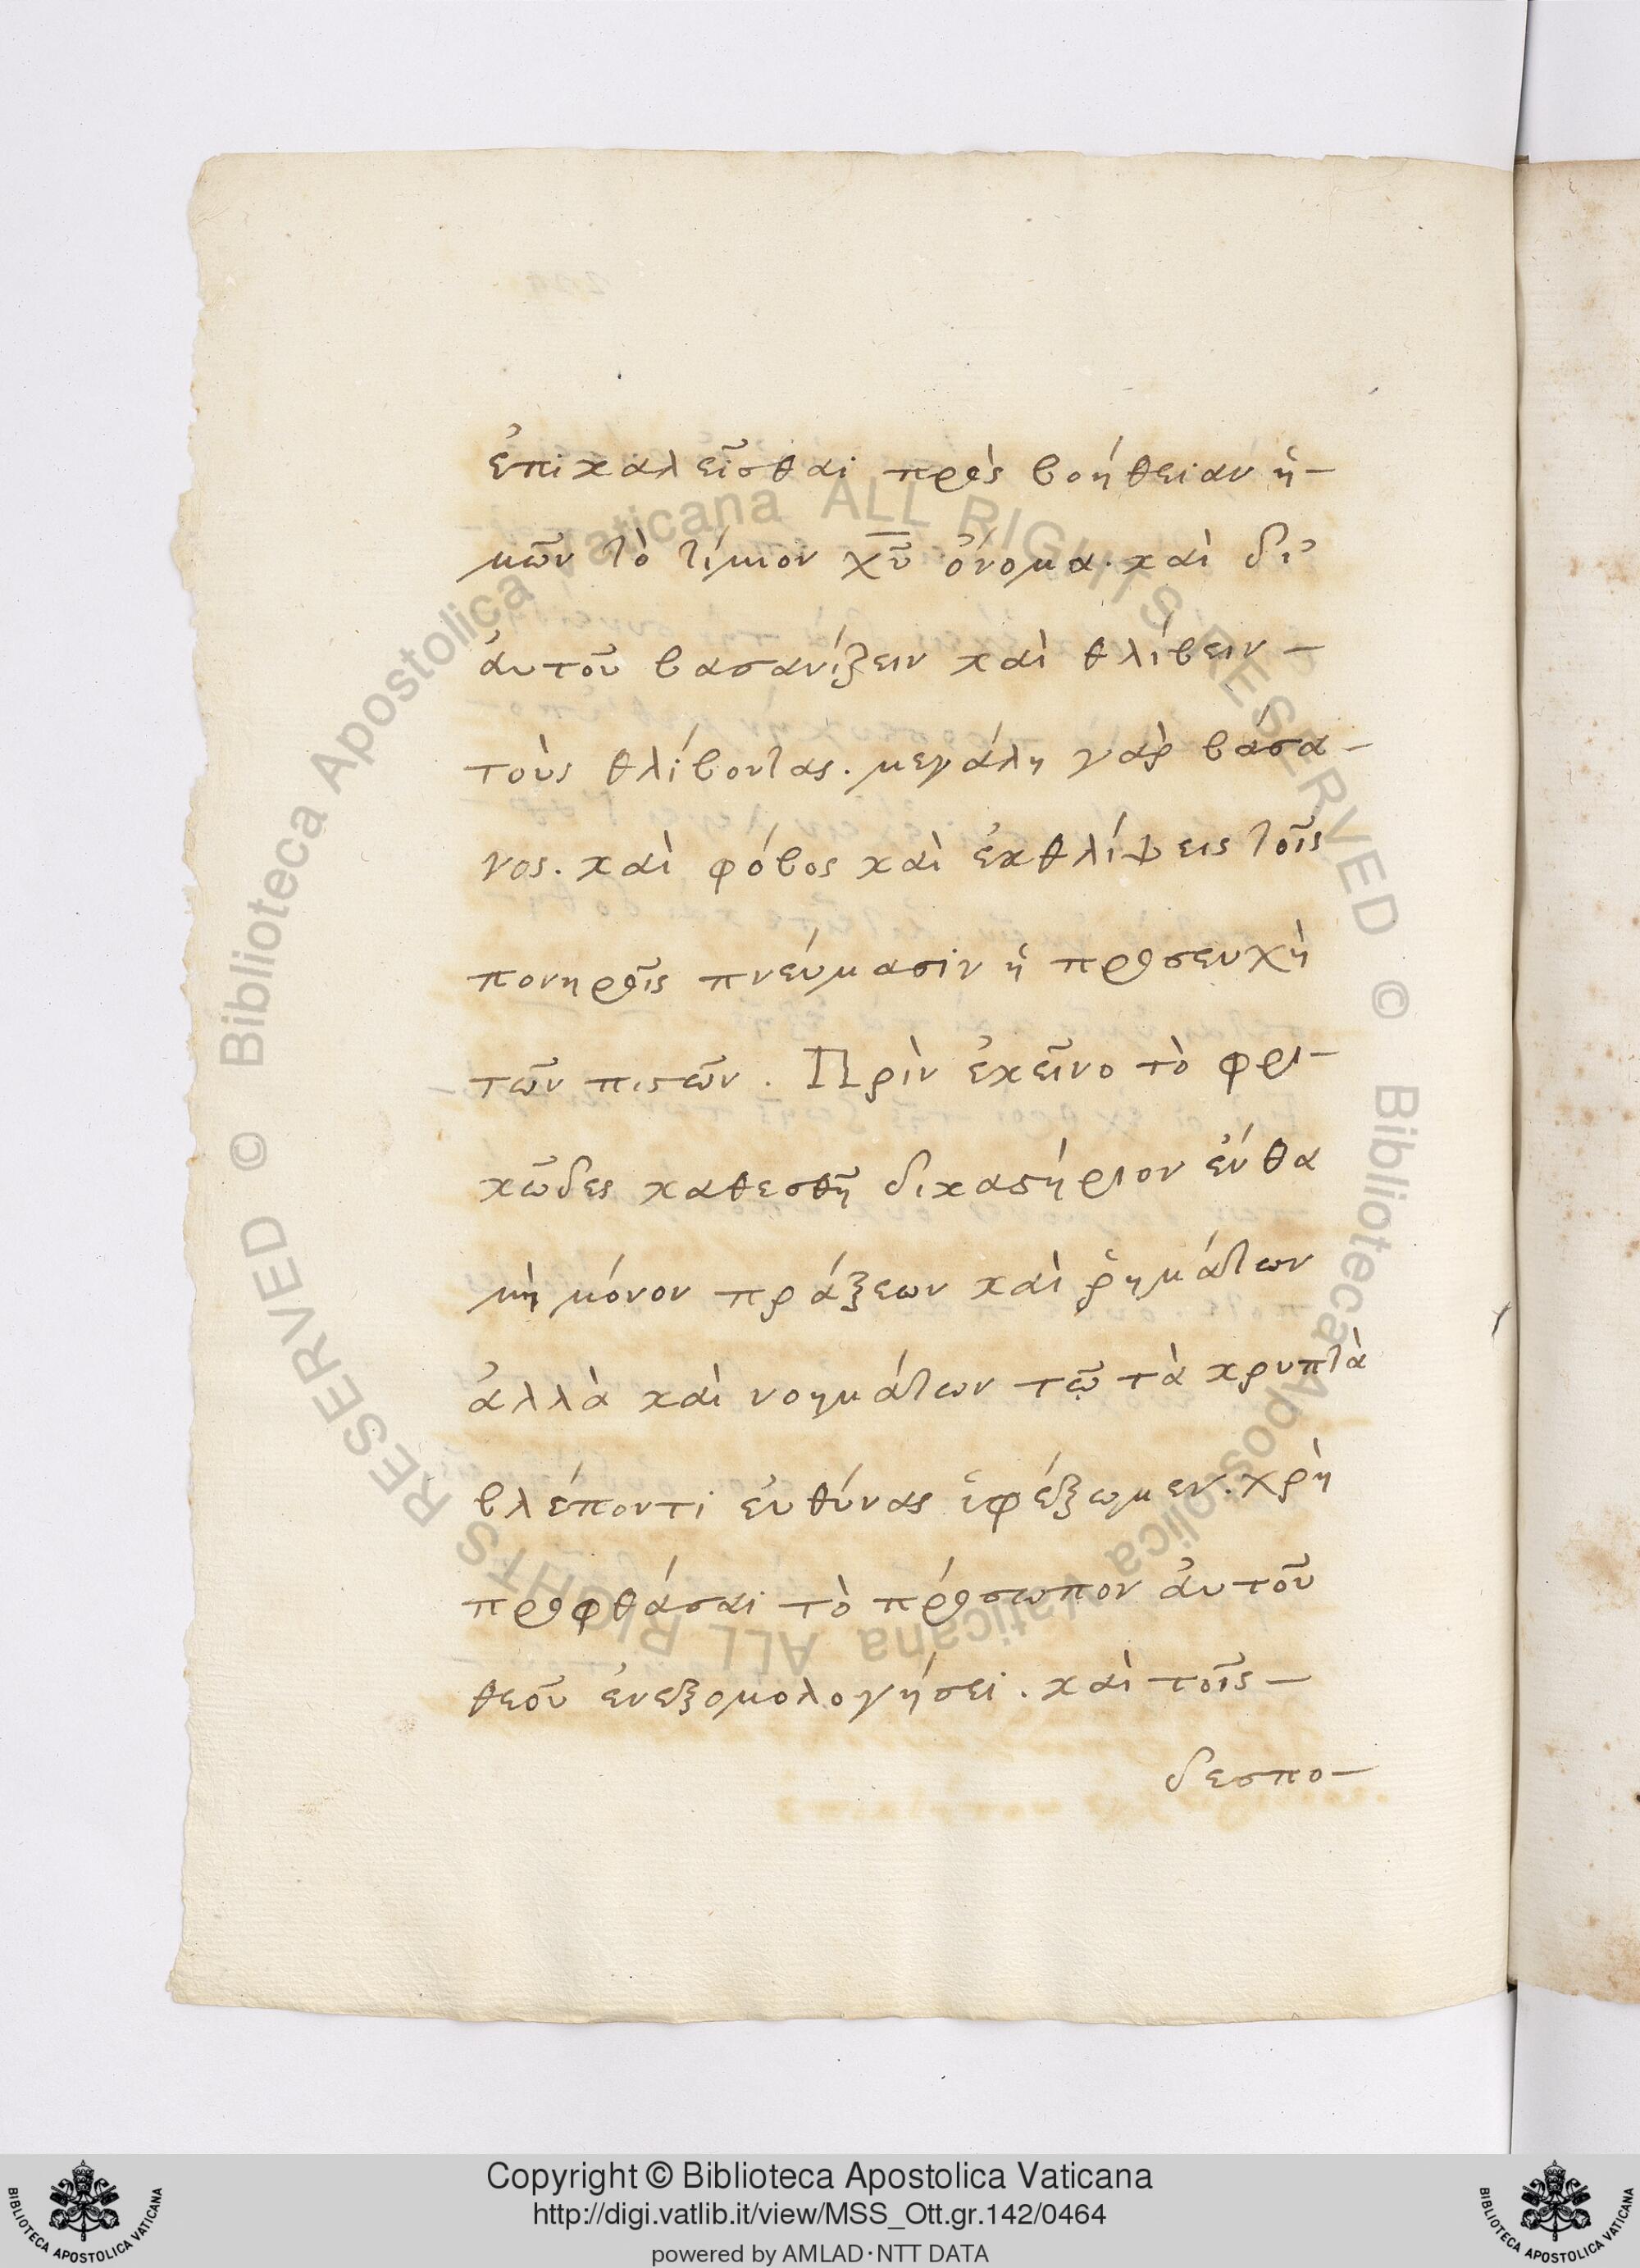 ἐπικαλεῖσθαι πρὸς βοήθειαν ἡ-
μῶν τὸ τίμιον χ̅υ̅ ὄνομα. καὶ δι’
ἀυτοῦ βασανίζειν καὶ θλίβειν -
τοὺς θλίβοντας. μεγάλη γὰρ βάσα-
νος. καὶ φόβος καὶ ἐκθλίψεις τοῖς
πονηροῖς πνεύμασιν ἡ προσευχὴ
τῶν πιστῶν. Πρὶν ἐκεῖνο τὸ φρι-
κῶδες καθεσθῆ δικαστήριον ἔνθα
μὴ μόνον πράξεων καὶ ῥημάτων
ἀλλὰ καὶ νοημάτων τῶ τὰ κρυπτὰ
βλέποντι ἐυθύνας ὑφέξωμεν. χρὴ
προφθάσαι τὸ πρόσωπον ἀυτοῦ
θεοῦ ἐνεξομολογήσει. καὶ τοῖς -
δεσπο-
Biblioteca Apostolica Vaticana ALL RIGHTS RESERVED ©
Biblioteca Apostolica Vaticana ALL RIGHTS RESERVED ©
Copyright © Biblioteca Apostolica Vaticana
http://digi.vatlib.it/view/MSS_Ott.gr.142/0464
powered by AMLAD·NTT DATA
BIBLIOTECA APOSTOLICA VATICANA
BIBLIOTECA APOSTOLICA VATICANA